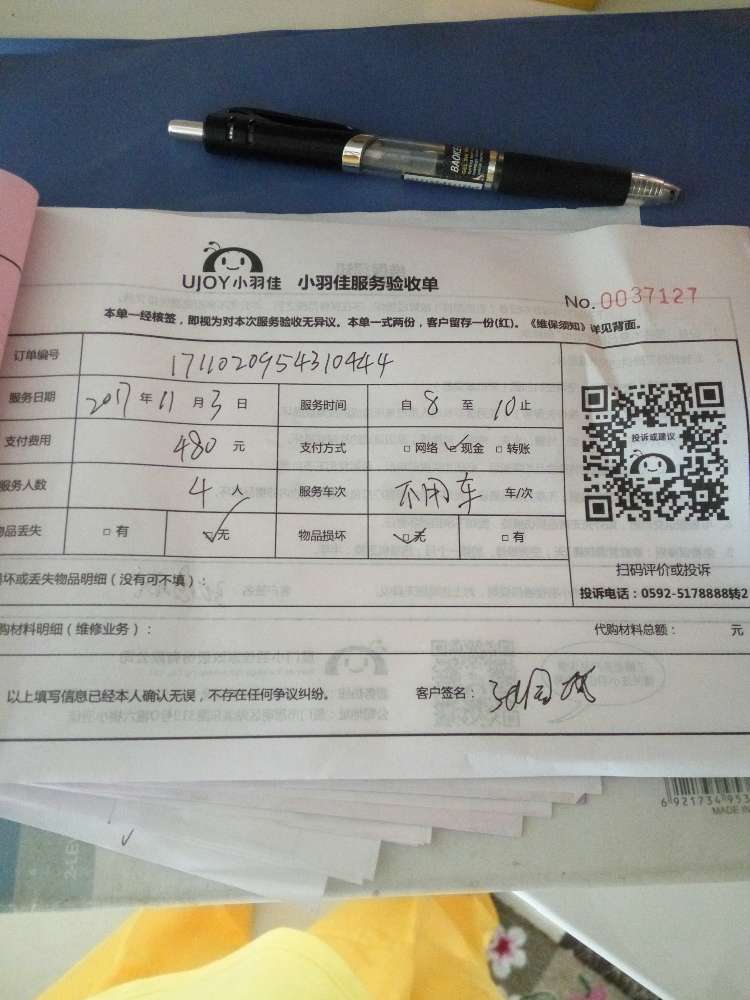 BAOKE
UJOY小羽佳 小羽佳服务验收单
No.0037127
本单一经核签，即视为对本次服务验收无异议。本单一式两份，客户留存一份(红)。《维保须知》详见背面。
订单编号 1711020954310444
服务日期 2017年11月3日 服务时间 自8至10止
支付费用 480元 支付方式 □网络 ☑现金 □转账
服务人数 4人 服务车次 不用车 车/次
物品丢失 □有 ☑无 物品损坏 ☑无 □有
投诉或建议
扫码评价或投诉
投诉电话：0592-5178888转2
损坏或丢失物品明细（没有可不填）：
代购材料明细（维修业务）： 代购材料总额： 元
以上填写信息已经本人确认无误，不存在任何争议纠纷。 客户签名：
6 921734 953
MADE IN
2-LE